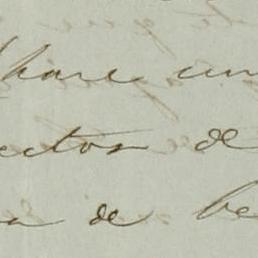 pare un
ectos de
a de be